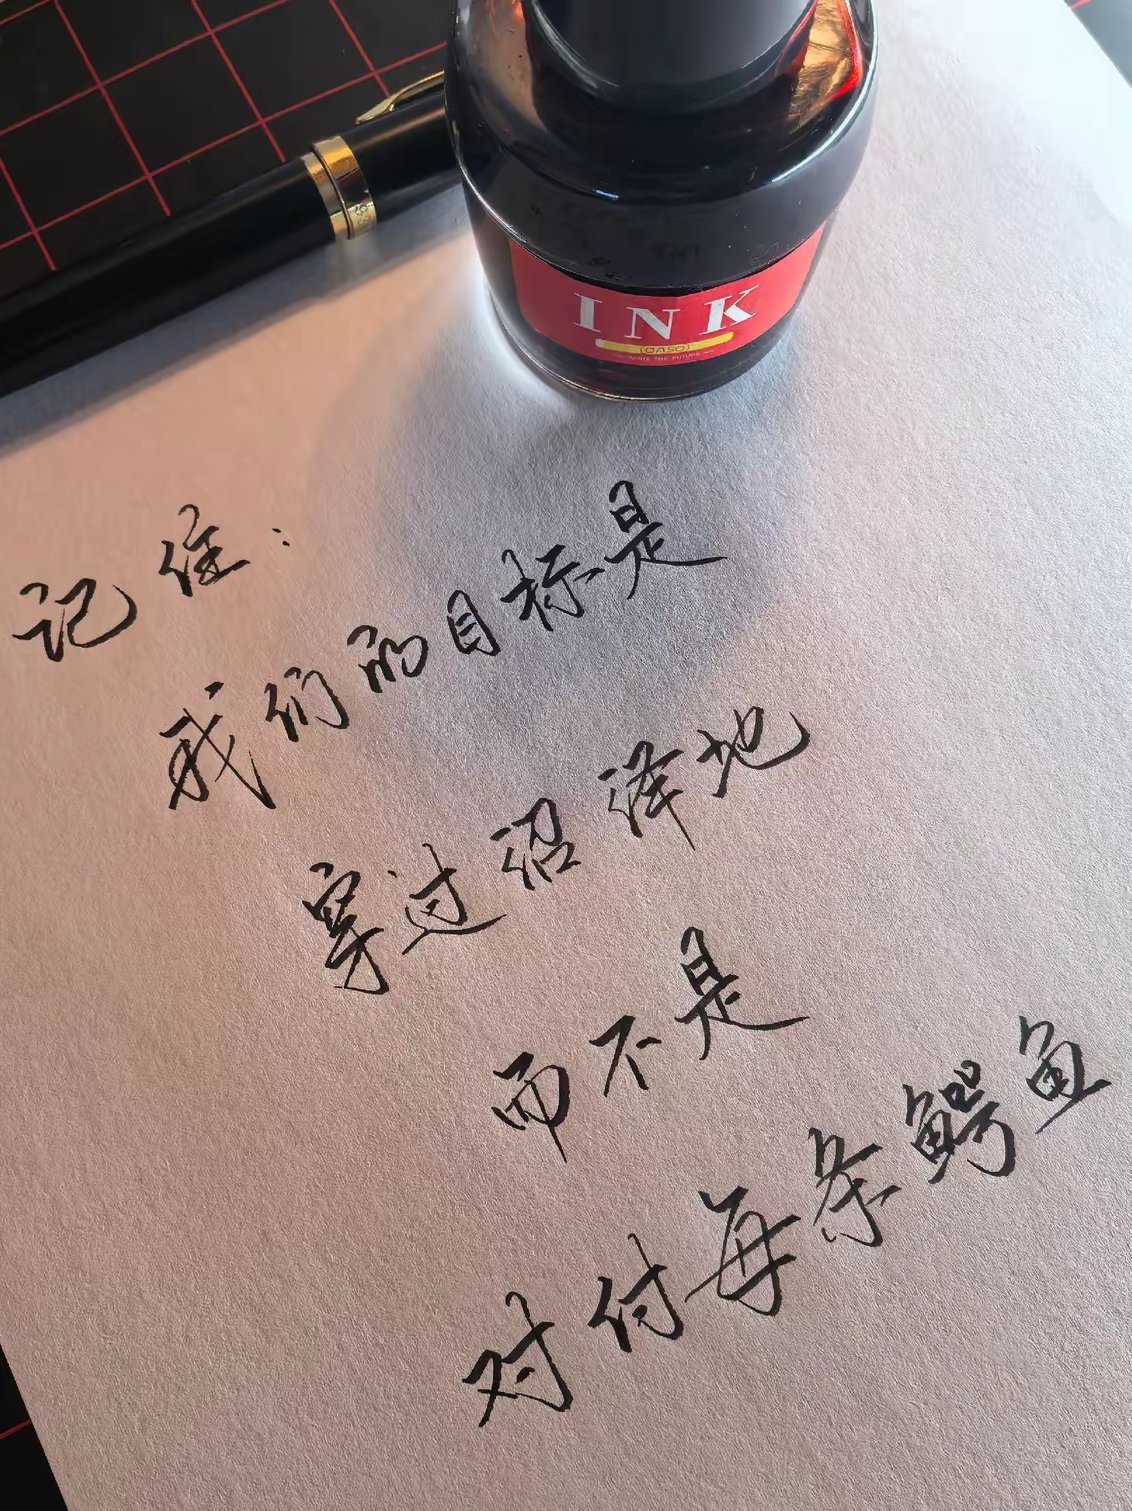 INK
WRITE THE FUTURE
记住：
我们的目标是
穿过沼泽地
而不是
对付每条鳄鱼